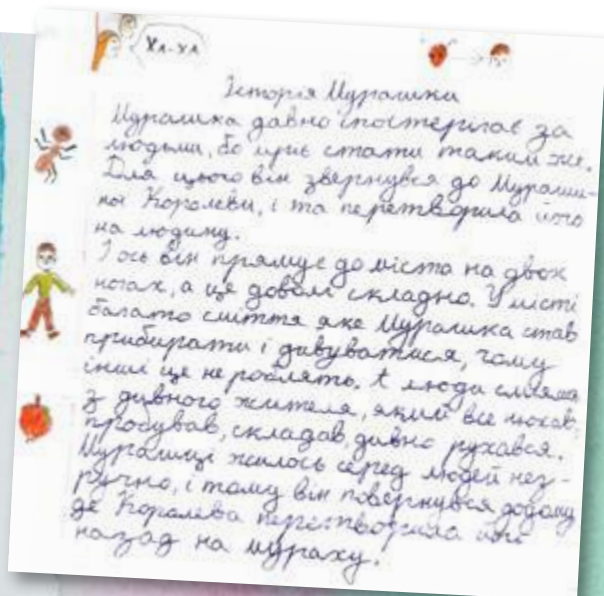 Ха-ха
Історія Мурашки
Мурашка давно спостерігає за
людьми, бо мріє стати таким же.
Для цього він звернувся до Мураши-
ної Королеви, і та перетворила його
на людину.
І ось він прямує до міста на двох
ногах, а це доволі складно. У місті
багато сміття яке Мурашка став
прибирати і дивуватися, чому
інші це не роблять. А люди
з дивного жителя, який все нюхав,
пробував, складав, дивно рухався.
Мурашці жилось серед людей нез-
ручно, і тому він повернувся додому
де Королева перетворила його
назад на мураху.